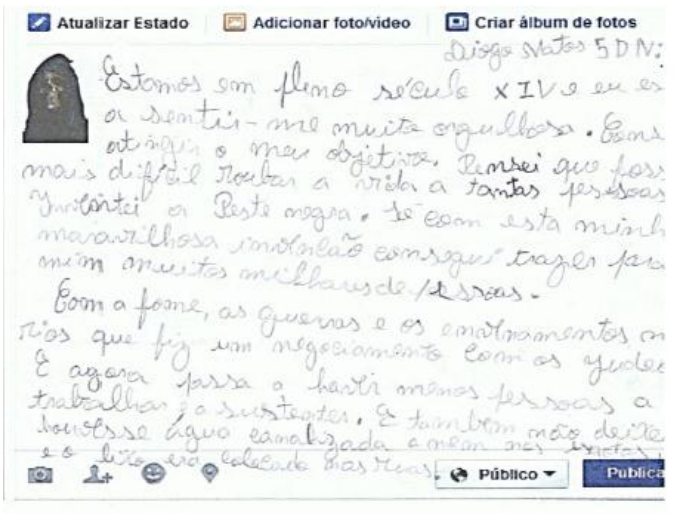 Atualizar Estado Adicionar foto/vídeo Criar álbum de fotos
Diogo Matos 5 D N:
Estamos em pleno século XIV e eu es
a sentir-me muito orgulhosa. Cons
atingir o meu objetivo. Pensei que foss
mais difícil roubar a vida a tantas pessoas
Inventei a Peste negra. Só com esta minh
maravilhosa invenção consegui trazer para
mim muitos milhares de pessoas.
Com a fome, as guerras e os envenamentos
rios que fiz um negociamento com os Judeu
E agora passa a haver menos pessoas a
trabalhar e a sustentar. E também não deixe
houvesse água canalizada e nem nas
e o lixo era colocado nas ruas.
Público Publica